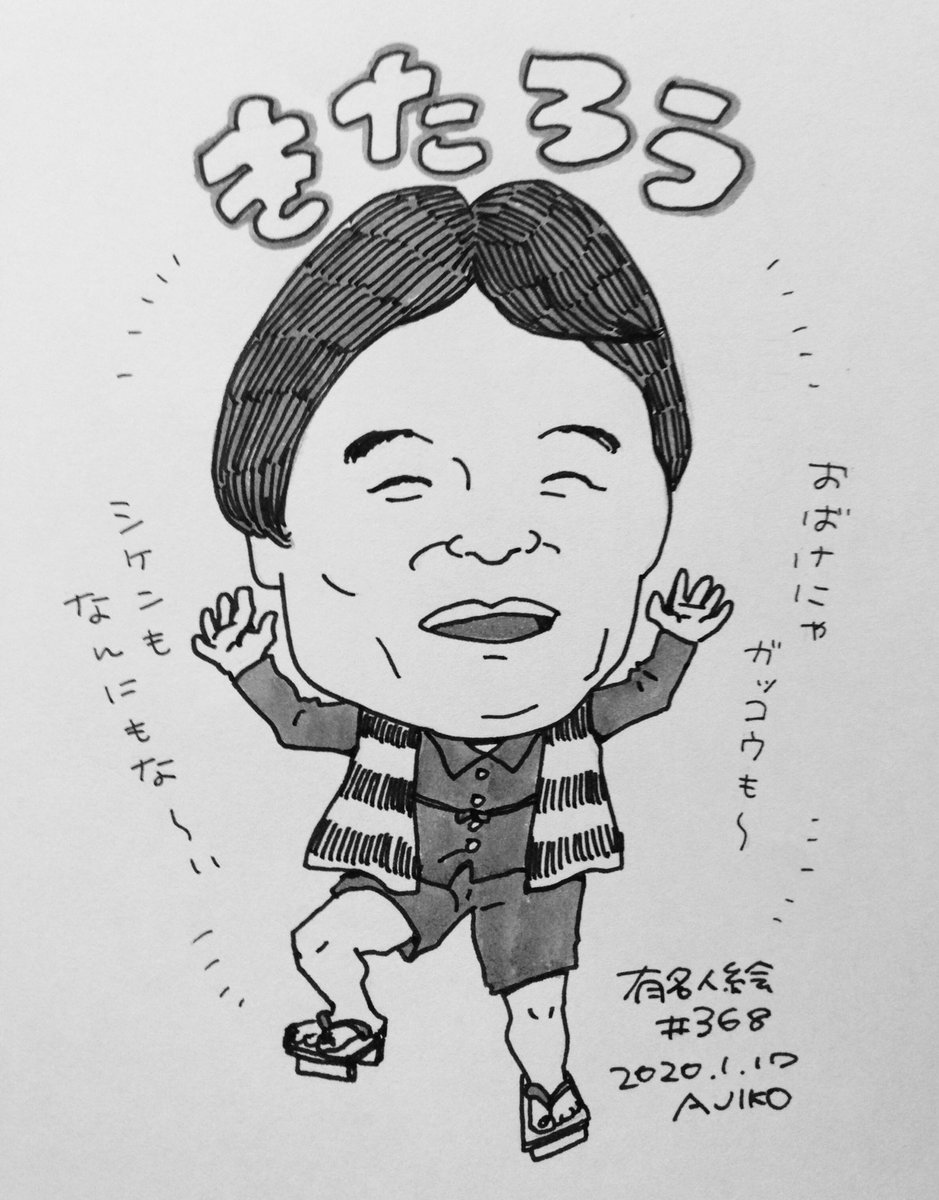 きたろう
おばけにゃ
ガッコウも～
シケンも
なんにもな～い
有名人絵
#368
2020.1.17
AJIKO